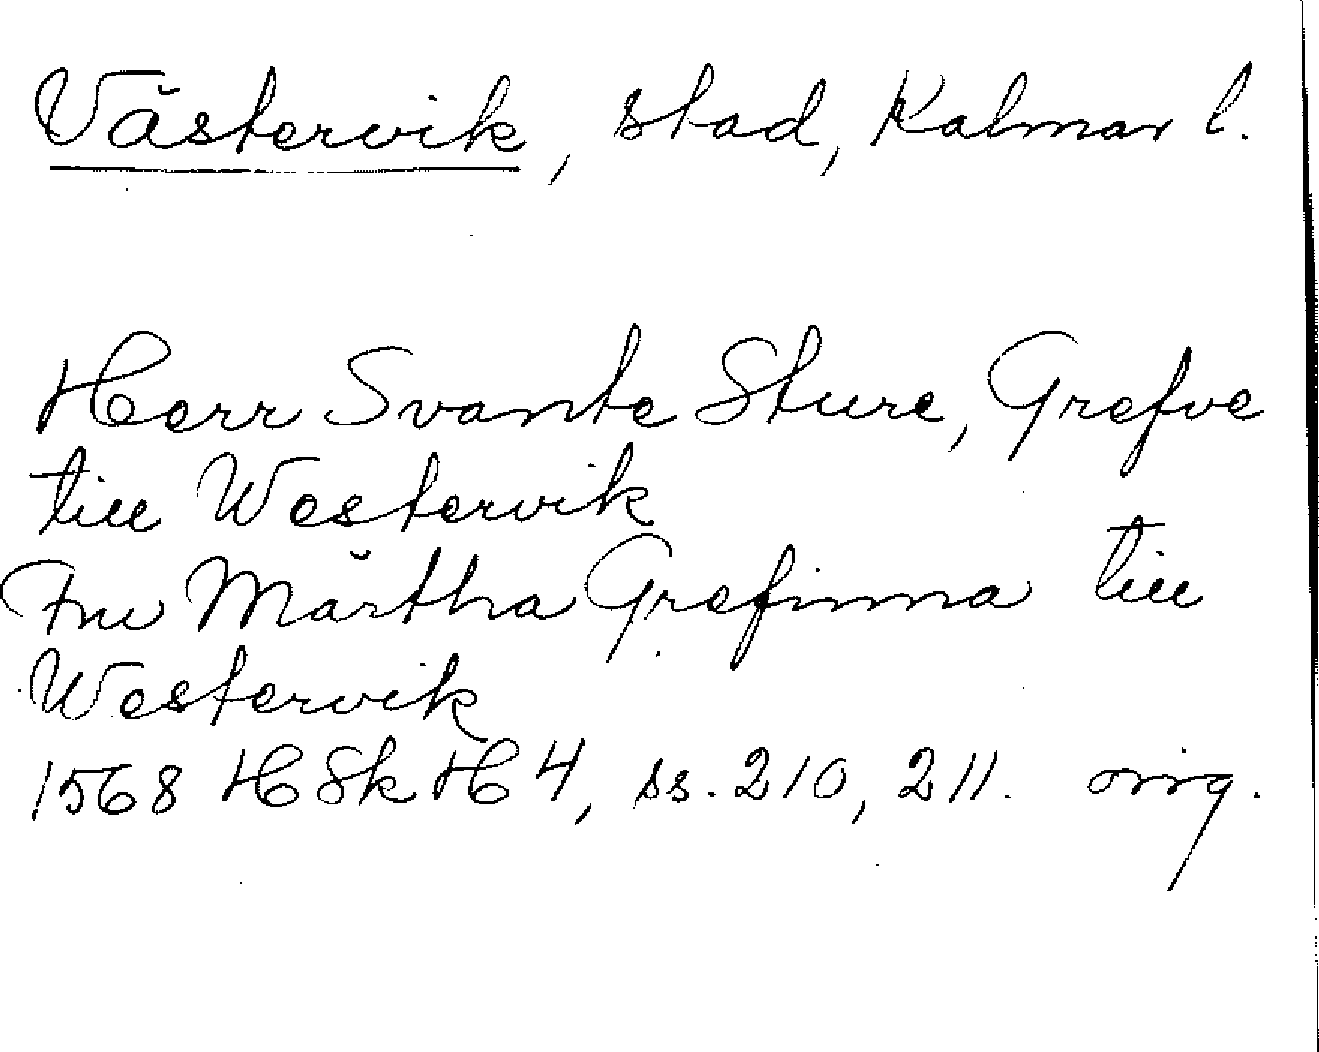 Västervik, stad, Kalmar l.
Herr Svante Sture, Grefve
till Westervik
Fru Märtha Grefinna till
Westervik
1568 HSkH 4, ss. 210, 211. orig.